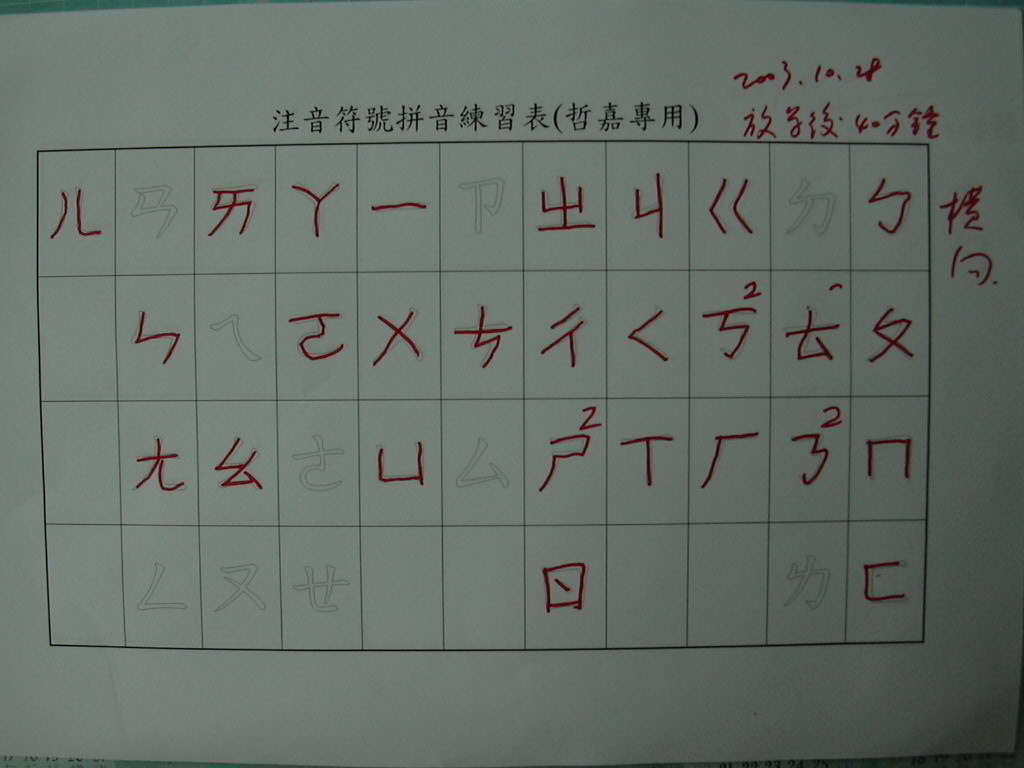 2003.10.28
注音符號拼音練習表(哲嘉專用)
放學後40分鐘
ㄦ ㄢ ㄞ ㄚ ㄧ ㄗ ㄓ ㄐ ㄍ ㄉ ㄅ
橫向.
ㄣ ㄟ ㄛ ㄨ ㄘ ㄔ ㄑ ㄎ2 ㄊˇ ㄆ
ㄤ ㄠ ㄜ ㄩ ㄙ ㄕ2 ㄒ ㄏ ㄋ2 ㄇ
ㄥ ㄡ ㄝ ㄖ ㄌ ㄈ